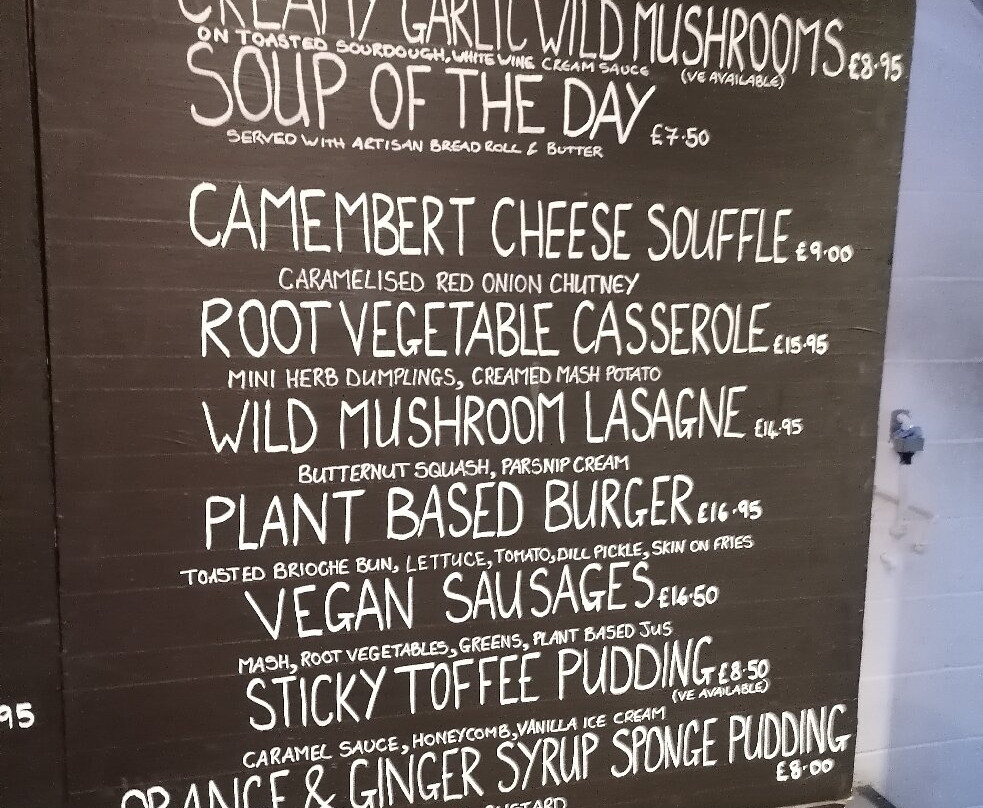 CREAMY GARLIC WILD MUSHROOMS £8.95
ON TOASTED SOURDOUGH, WHITE WINE CREAM SAUCE (VE AVAILABLE)
SOUP OF THE DAY £7.50
SERVED WITH ARTISAN BREAD ROLL & BUTTER
CAMEMBERT CHEESE SOUFFLE £9.00
CARAMELISED RED ONION CHUTNEY
ROOT VEGETABLE CASSEROLE £15.95
MINI HERB DUMPLINGS, CREAMED MASH POTATO
WILD MUSHROOM LASAGNE £14.95
BUTTERNUT SQUASH, PARSNIP CREAM
PLANT BASED BURGER £16.95
TOASTED BRIOCHE BUN, LETTUCE, TOMATO, DILL PICKLE, SKIN ON FRIES
VEGAN SAUSAGES £16.50
MASH, ROOT VEGETABLES, GREENS, PLANT BASED JUS
STICKY TOFFEE PUDDING £8.50
(VE AVAILABLE)
CARAMEL SAUCE, HONEYCOMB, VANILLA ICE CREAM
ORANGE & GINGER SYRUP SPONGE PUDDING
£8.00
CUSTARD
95